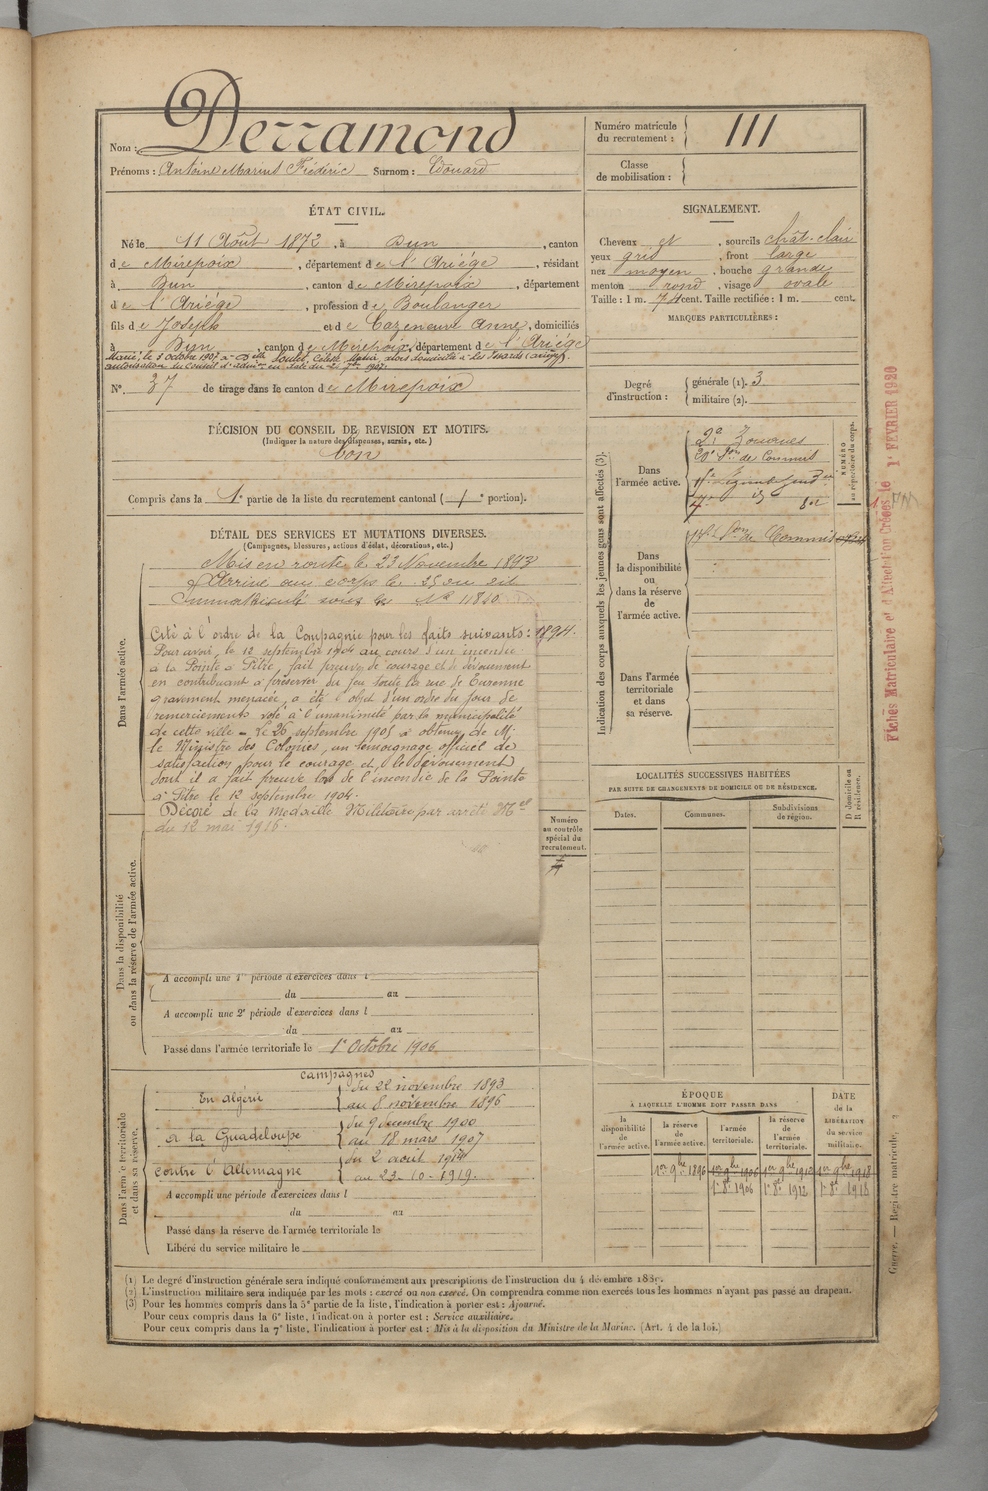 Nom : Derramond
Prénoms : Antoine Marius Frédéric Surnom : Edouard
Numéro matricule du recrutement : 111
Classe de mobilisation :
ÉTAT CIVIL.
Né le 11 Août 1872, à Dun, canton
de Mirepoix, département de l'Ariège, résidant
à Dun, canton de Mirepoix, département
de l'Ariège, profession de Boulanger
fils de Joseph et de Cazeneuve Anne, domiciliés
à Dun, canton de Mirepoix, département de l'Ariège
Marié le 3 octobre 1907 à Delle Soulet, Céleste, Maria, lors domicilié à les Issards (Ariège).
autorisation du Conseil d'admon en date du 21 7bre 1907.
N° 37 de tirage dans le canton de Mirepoix
SIGNALEMENT.
Cheveux et, sourcils chât-clair
yeux gris, front large
nez moyen, bouche grande
menton rond, visage ovale
Taille : 1 m. 74 cent. Taille rectifiée : 1 m. cent.
MARQUES PARTICULIÈRES :
Degré d'instruction :
générale (1). 3
militaire (2).
DÉCISION DU CONSEIL DE REVISION ET MOTIFS.
(Indiquer la nature des dispenses, sursis, etc.)
bon
Compris dans la 1e partie de la liste du recrutement cantonal ( / e portion).
DÉTAIL DES SERVICES ET MUTATIONS DIVERSES.
(Campagnes, blessures, actions d'éclat, décorations, etc.)
Dans l'armée active.
Mis en route le 23 Novembre 1893
Arrivé au corps le 25 du dit
Immatriculé sous le No 11810
Cité à l'ordre de la Compagnie pour les faits suivants : 1894.
Pour avoir, le 12 septembre 1904 au cours d'un incendie
à la Pointe à Pitre, fait preuve de courage et de dévouement
en contribuant à préserver du feu toute la rue de Turenne
gravement menacée, a été l'objet d'un ordre du jour de
remerciements voté à l'unanimité par la municipalité
de cette ville - Le 26 septembre 1905 a obtenu de M.
le Ministre des Colonies, un témoignage officiel de
satisfaction pour le courage et le dévouement
dont il a fait preuve lors de l'incendie de la Pointe
à Pitre le 12 septembre 1904.
Décoré de la Médaille Militaire par arrêté Mel
du 12 mai 1916.
Numéro au contrôle spécial du recrutement.
Dans la disponibilité ou dans la réserve de l'armée active.
A accompli une 1re période d'exercices dans l
du au
A accompli une 2e période d'exercices dans l
du au
Passé dans l'armée territoriale le 1er Octobre 1906
Dans l'armée territoriale et dans sa réserve.
Campagnes
En Algérie du 22 novembre 1893
au 8 novembre 1896
à la Guadeloupe du 9 décembre 1900
au 18 mars 1907
contre l'Allemagne du 2 août 1914
au 23-10-1919.
A accompli une période d'exercices dans l
du au
Passé dans la réserve de l'armée territoriale le
Libéré du service militaire le
Indication des corps auxquels les jeunes gens sont affectés (3).
Dans l'armée active.
2e Zouaves
20e Son de Commis
NUMÉRO au répertoire du corps.
Dans la disponibilité ou dans la réserve de l'armée active.
Son de Commis
Dans l'armée territoriale et dans sa réserve.
LOCALITÉS SUCCESSIVES HABITÉES
PAR SUITE DE CHANGEMENTS DE DOMICILE OU DE RÉSIDENCE.
Dates. Communes. Subdivisions de région. D Domicile ou R résidence.
ÉPOQUE
A LAQUELLE L'HOMME DOIT PASSER DANS
la disponibilité de l'armée active. la réserve de l'armée active. l'armée territoriale. la réserve de l'armée territoriale.
DATE de la LIBÉRATION du service militaire.
1er 9bre 1896 1er 9bre 1906 1er 9bre 1912 1er 9bre 1918
1er 8bre 1906 1er 8bre 1912 1er 8bre 1918
Fiches Matriculaire et d'Affectation Créées le 1er FEVRIER 1920
Guerre. — Registre matricule. 2
(1) Le degré d'instruction générale sera indiqué conformément aux prescriptions de l'instruction du 4 décembre 1889.
(2) L'instruction militaire sera indiquée par les mots : exercé ou non exercé. On comprendra comme non exercés tous les hommes n'ayant pas passé au drapeau.
(3) Pour les hommes compris dans la 5e partie de la liste, l'indication à porter est : Ajourné.
Pour ceux compris dans la 6e liste, l'indication à porter est : Service auxiliaire.
Pour ceux compris dans la 7e liste, l'indication à porter est : Mis à la disposition du Ministre de la Marine. (Art. 4 de la loi.)